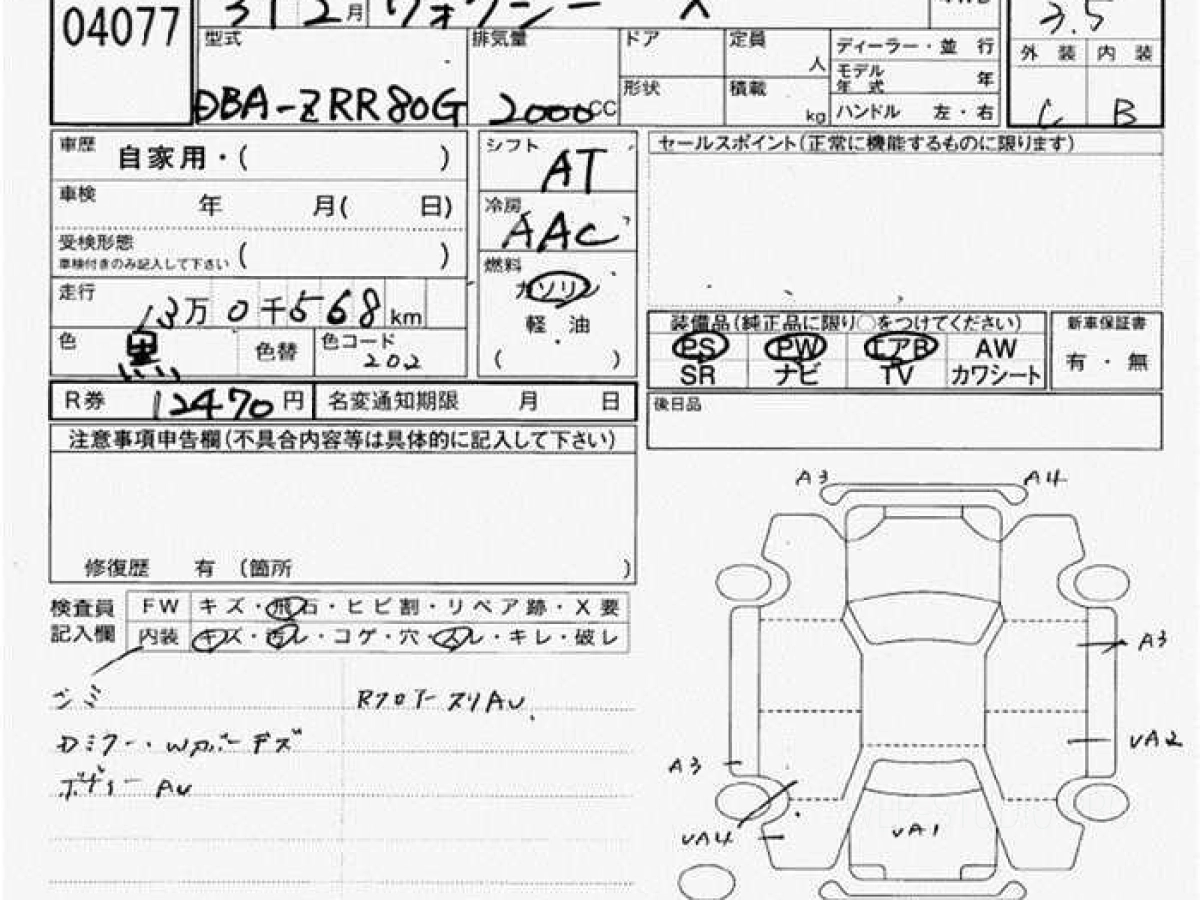 04077
月 ヴォクシー X
3.5
型式 排気量 ドア 定員 人 ディーラー・並 行
外 装 内 装
形状 積載 kg モデル年 式 年
DBA-ZRR80G 2000 CC ハンドル 左・右
C B
車歴 自家用・( )
シフト AT
セールスポイント(正常に機能するものに限ります)
車検 年 月( 日)
冷房 AAC
受検形態 ( )
車検付きのみ記入して下さい
燃料 ガソリン
軽 油
( )
走行 13万 0千568 km
色 黒 色替 色コード 202
装備品(純正品に限り○をつけてください) 新車保証書
PS PW エアB AW
有・無
SR ナビ TV カワシート
R券 12470円 名変通知期限 月 日
後日品
注意事項申告欄(不具合内容等は具体的に記入して下さい)
修復歴 有 (箇所 )
検査員記入欄
FW キズ・飛石・ヒビ割・リペア跡・X要
内装 キズ・汚レ・コゲ・穴・スレ・キレ・破レ
シミ Rフロアースリ AU
Dミラー・Wカバーキズ
ボディー AU
A3 A4
A3
UA2
A3
UA4 UA1